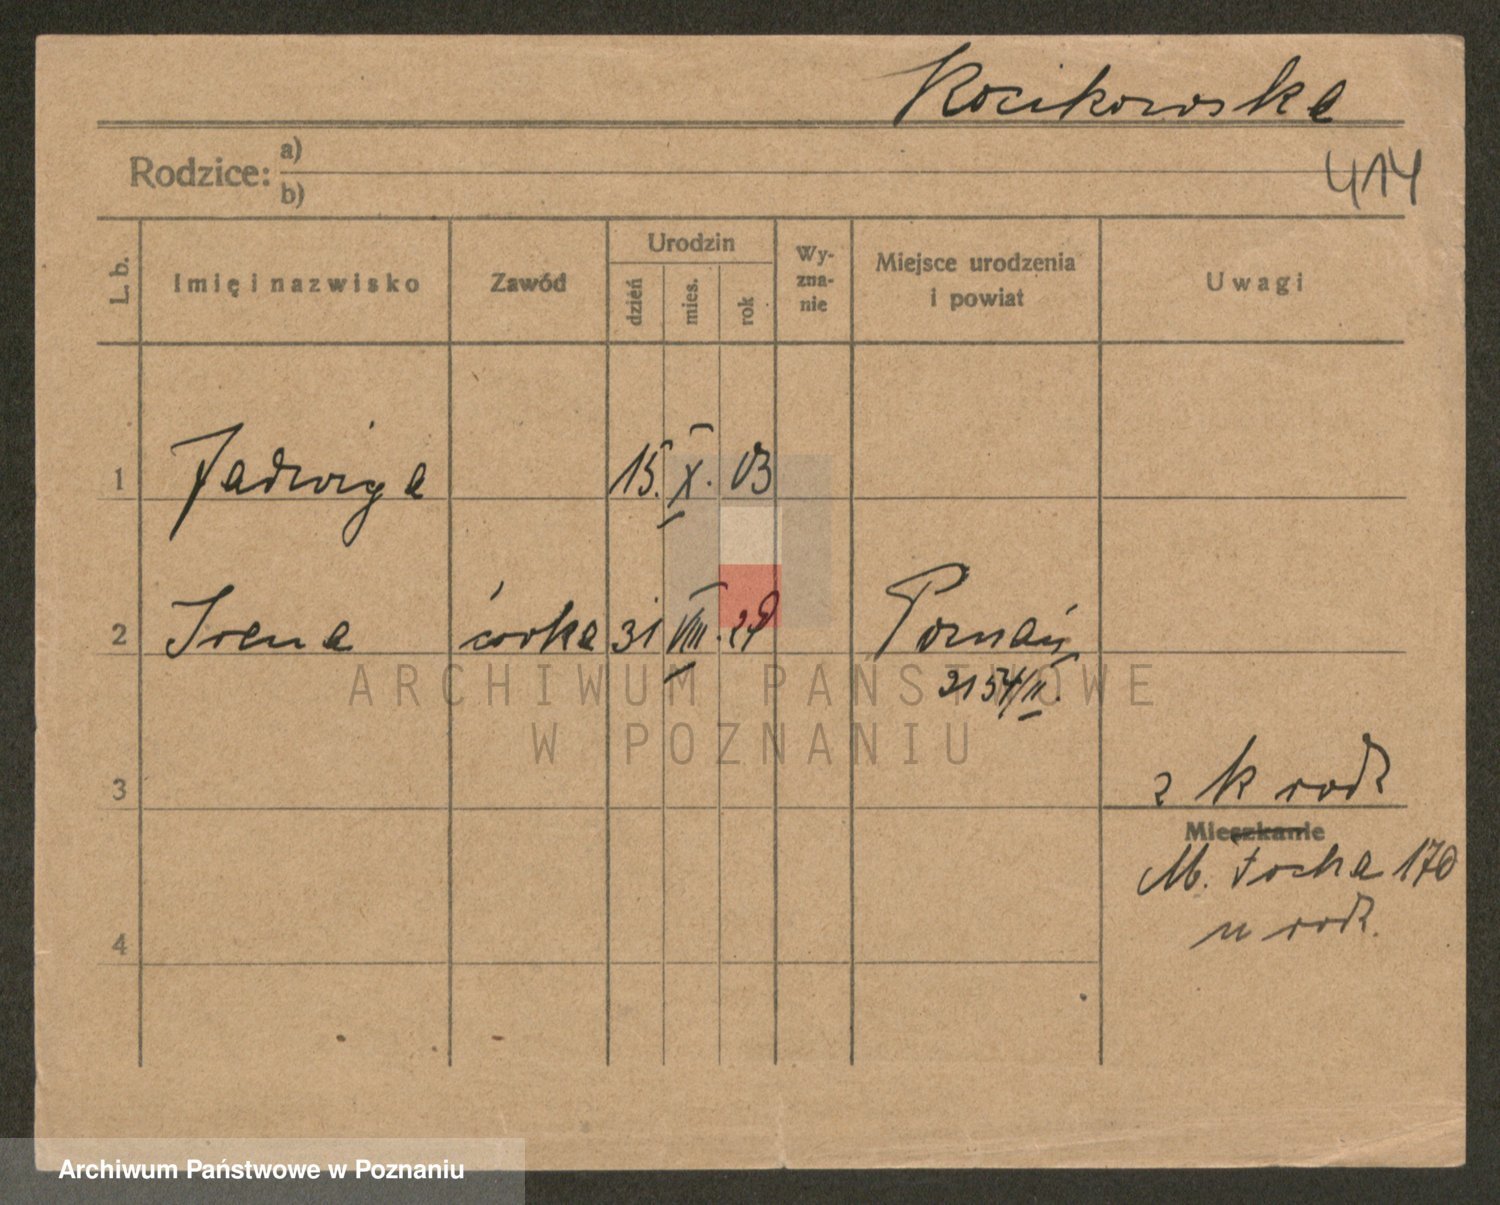 Kocikowska
Rodzice: a)
b)
414
L. b.
Imię i nazwisko
Zawód
Urodzin
dzień
mies.
rok
Wy-
zna-
nie
Miejsce urodzenia
i powiat
Uwagi
1 Jadwiga 15. X. 03
2 Irena córka 31 VIII. 28 Poznań
2154/II.
3
z k rodz
Mieszkanie
M. Focha 170
u rodz.
4
ARCHIWUM PAŃSTWOWE
W POZNANIU
Archiwum Państwowe w Poznaniu